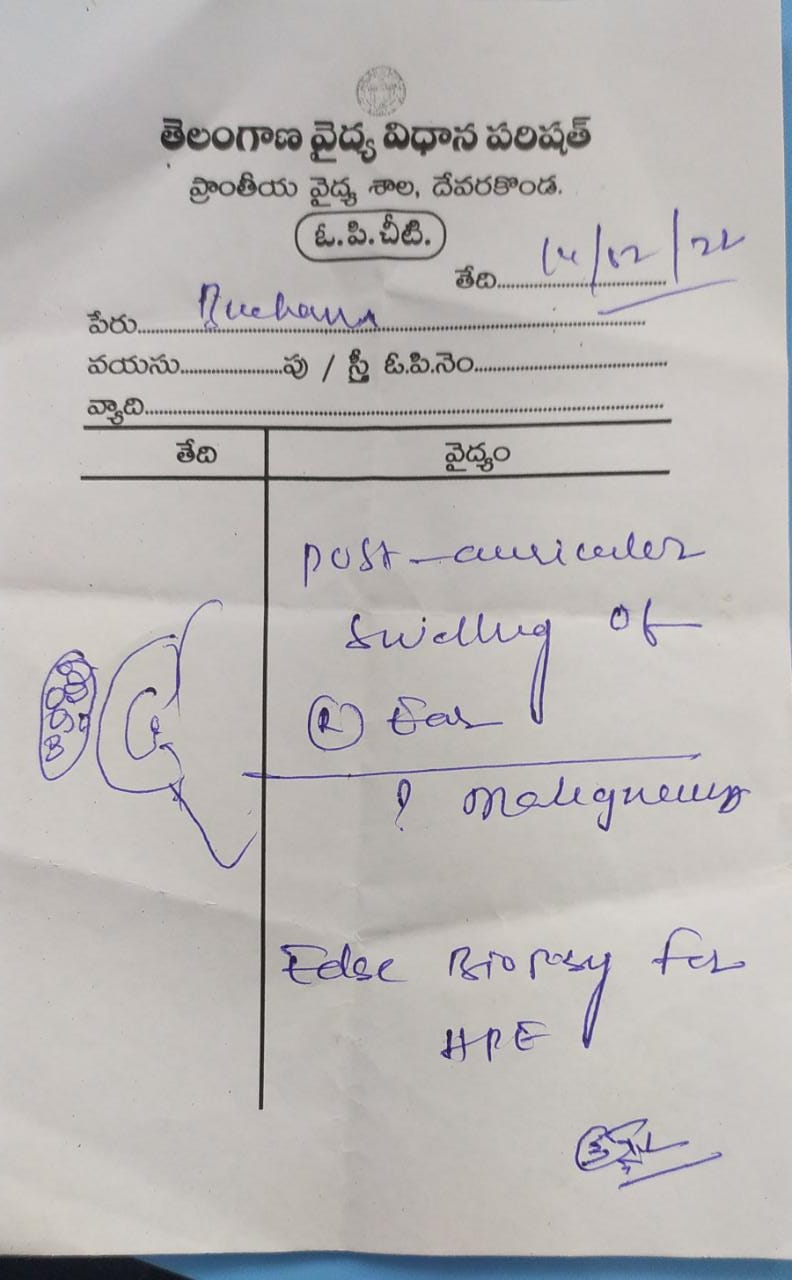 తెలంగాణ వైద్య విధాన పరిషత్
ప్రాంతీయ వైద్య శాల, దేవరకొండ.
ఓ.పి.చీటి.
తేది.................... 14/02/22
పేరు....................
వయసు....................పు / స్త్రీ ఓ.పి.నెం....................
వ్యాది....................
తేది వైద్యం
post-auricular
swelling of
(R) Ear
? malignancy
Edge Biopsy for
HPE